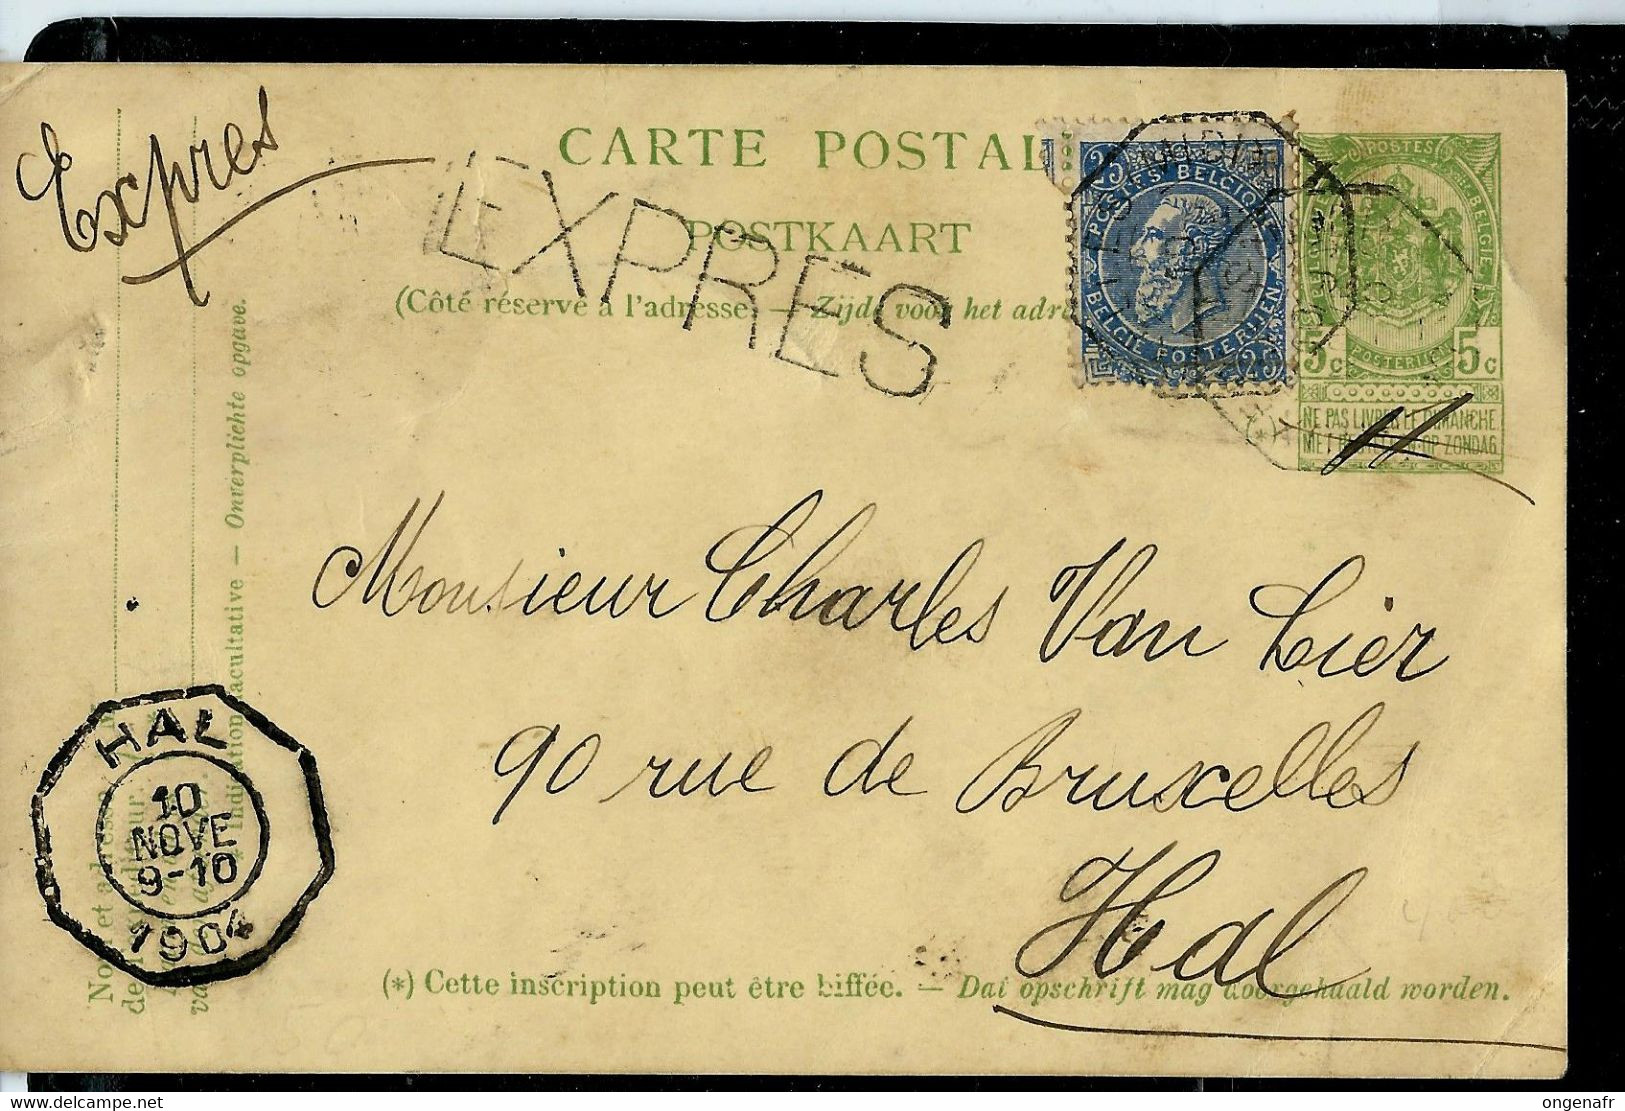 Expres
CARTE POSTAL
EXPRES
POSTKAART
(Côté réservé à l'adresse. — Zijde voor het adr
25
POSTES BELGIQUE
BELGIE POSTERIJEN
25
POSTES
BELGIE
POSTERIJEN
5c 5c
NE PAS LIVRER LE DIMANCHE
NIET BESTELLEN OP ZONDAG
Monsieur Charles Van Lier
90 rue de Bruxelles
Hal
HAL
10
NOVE
9-10
1904
Indication facultative — Onverplichte opgave.
(*) Cette inscription peut être biffée. — Dat opschrift mag doorgehaald worden.
ongenafr
delcampe.net